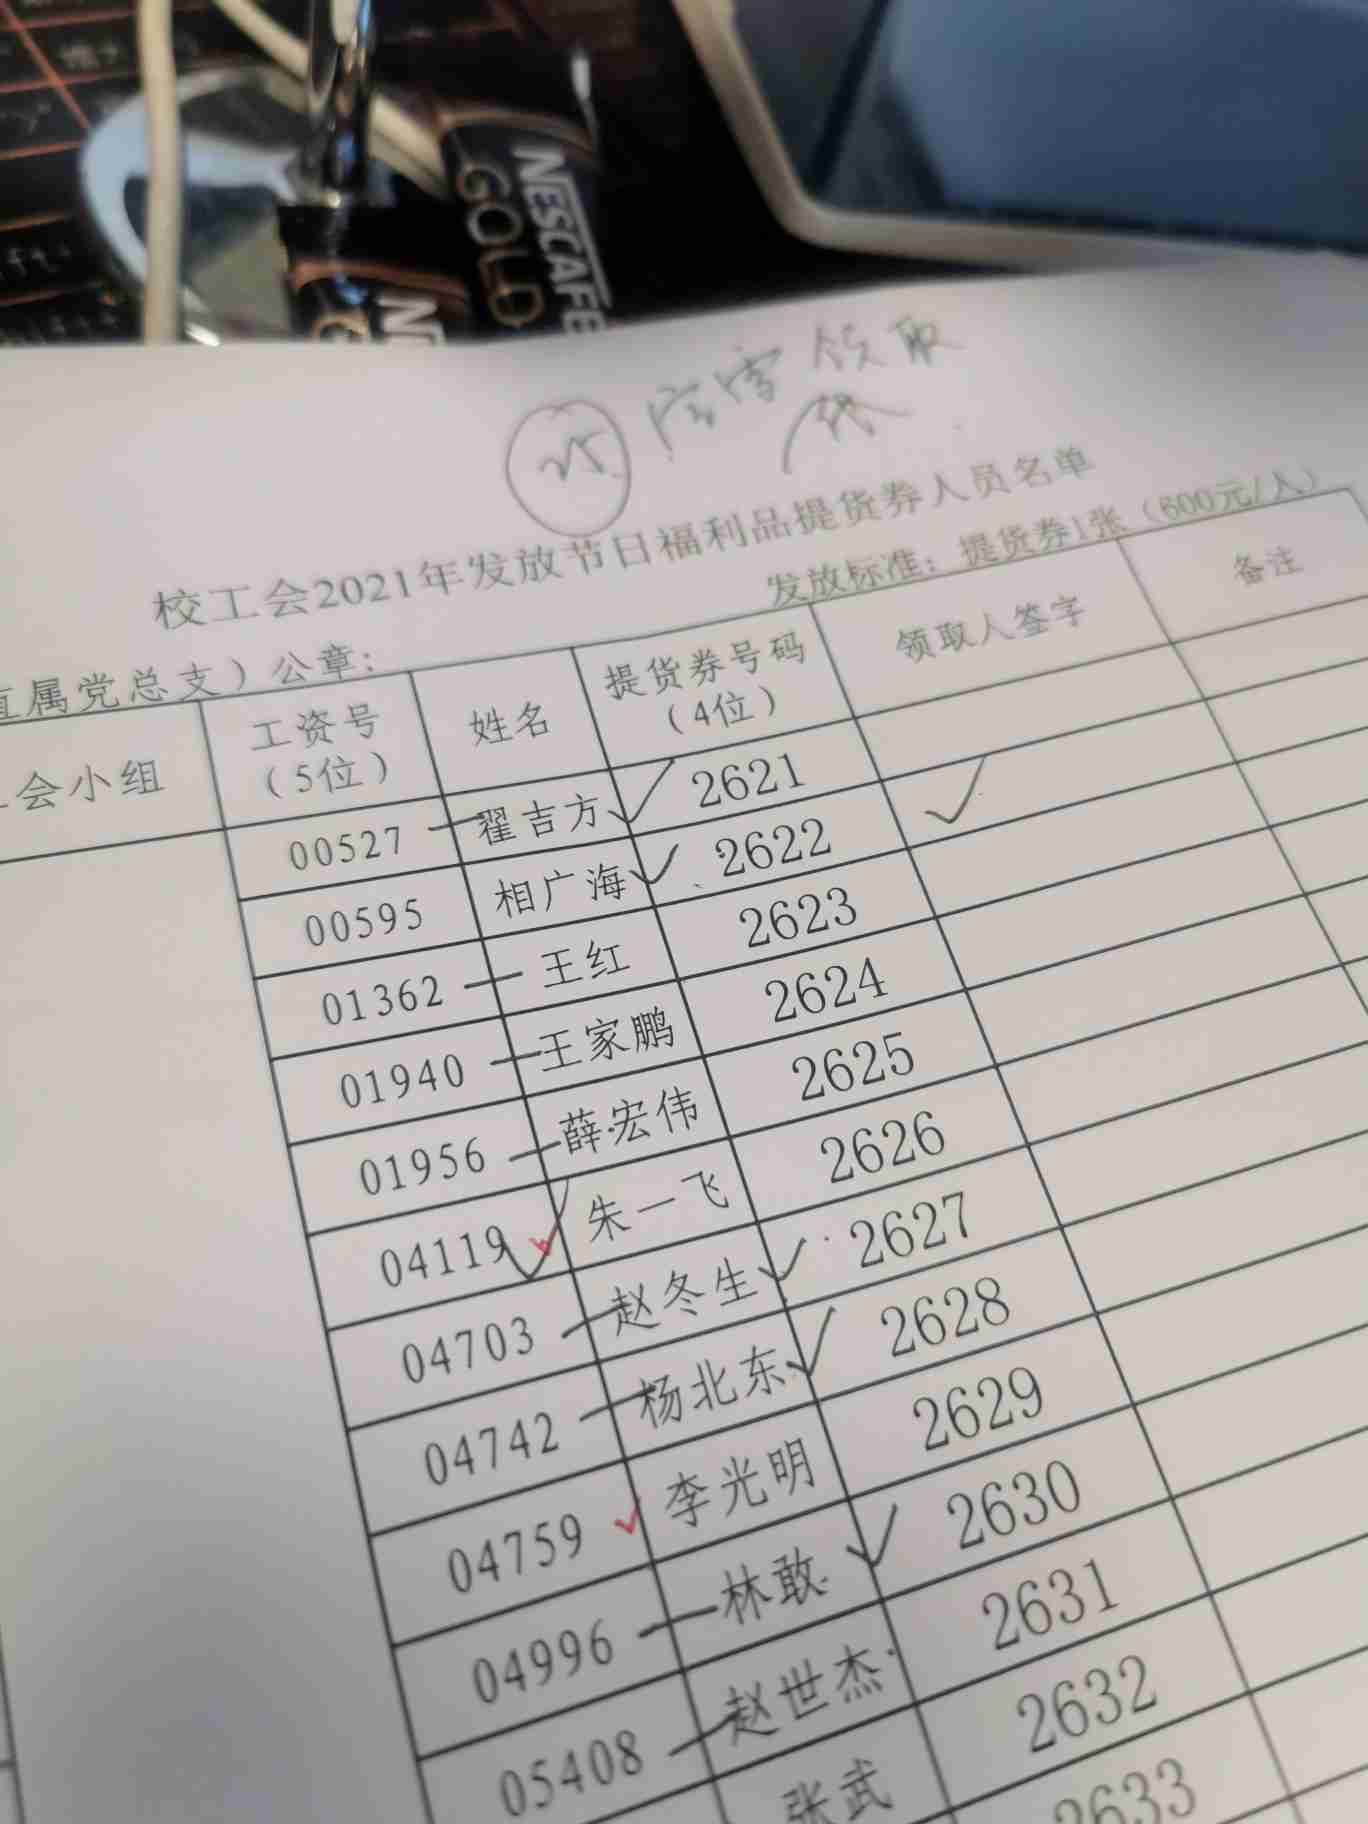 NESCAFE
GOLD
领取
代
校工会2021年发放节日福利品提货券人员名单
发放标准：提货券1张（600元/人）
直属党总支）公章：
工会小组 工资号（5位） 姓名 提货券号码（4位） 领取人签字 备注
00527 翟吉方 2621
00595 相广海 2622
01362 王红 2623
01940 王家鹏 2624
01956 薛宏伟 2625
04119 朱一飞 2626
04703 赵冬生 2627
04742 杨北东 2628
04759 李光明 2629
04996 林敢 2630
05408 赵世杰 2631
张武 2632
2633